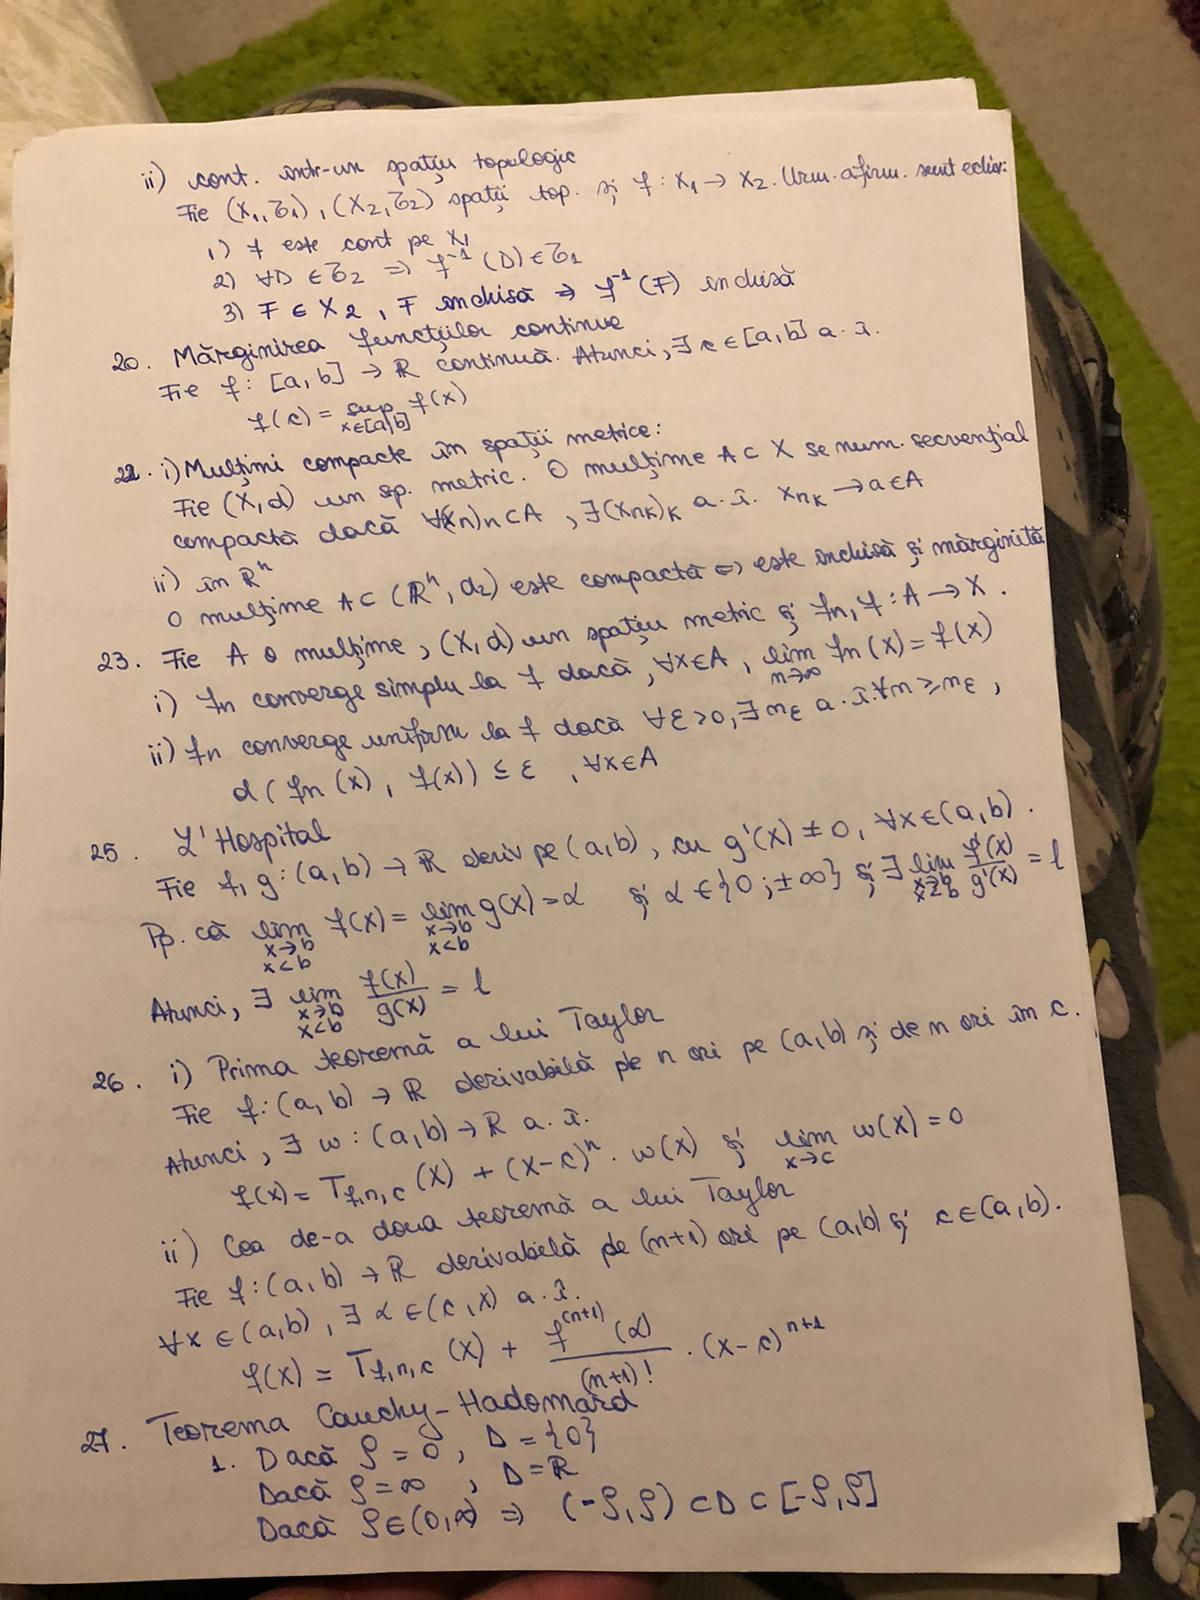 ii) cont. intr-un spațiu topologic
Fie (X₁,τ₁), (X₂,τ₂) spații top. și f: X₁ → X₂. Urm. afirm. sunt echiv:
1) f este cont pe X₁
2) ∀D ∈ τ₂ ⇒ f⁻¹(D) ∈ τ₁
3) F ∈ X₂, F închisă ⇒ f⁻¹(F) închisă
20. Mărginirea funcțiilor continue
Fie f: [a,b] → ℝ continuă. Atunci, ∃ c ∈ [a,b] a.î.
f(c) = sup f(x)
x∈[a,b]
22. i) Mulțimi compacte în spații metrice:
Fie (X,d) un sp. metric. O mulțime A ⊂ X se num. secvențial
compactă dacă ∀(xn)n ⊂ A, ∃(xnk)k a.î. xnk → a ∈ A
ii) în ℝⁿ
O mulțime A ⊂ (ℝⁿ, d₂) este compactă ⇔ este închisă și mărginită
23. Fie A o mulțime, (X,d) un spațiu metric și fn, f: A → X.
i) fn converge simplu la f dacă, ∀x∈A, lim fn(x) = f(x)
n→∞
ii) fn converge uniform la f dacă ∀ε>0, ∃nε a.î. ∀n ≥ nε,
d(fn(x), f(x)) ≤ ε, ∀x∈A
25. L'Hospital
Fie f, g: (a,b) → ℝ deriv pe (a,b), cu g'(x) ≠ 0, ∀x∈(a,b).
Pp. că lim f(x) = lim g(x) = α și α ∈ {0; ±∞} și ∃ lim f'(x)/g'(x) = l
x→b x→b x→b
x<b x<b x<b
Atunci, ∃ lim f(x)/g(x) = l
x→b
x<b
26. i) Prima teoremă a lui Taylor
Fie f: (a,b) → ℝ derivabilă de n ori pe (a,b) și de n ori în c.
Atunci, ∃ w: (a,b) → ℝ a.î.
f(x) = Tf,n,c (x) + (x-c)ⁿ · w(x) și lim w(x) = 0
x→c
ii) Cea de-a doua teoremă a lui Taylor
Fie f: (a,b) → ℝ derivabilă de (n+1) ori pe (a,b) și c∈(a,b).
∀x ∈ (a,b), ∃ α ∈ (c,x) a.î.
f(x) = Tf,n,c (x) + f⁽ⁿ⁺¹⁾(α)/(n+1)! · (x-c)ⁿ⁺¹
27. Teorema Cauchy-Hadomard
1. Dacă ρ = 0, D = {0}
Dacă ρ = ∞, D = ℝ
Dacă ρ∈(0,∞) ⇒ (-ρ,ρ) ⊂ D ⊂ [-ρ,ρ]